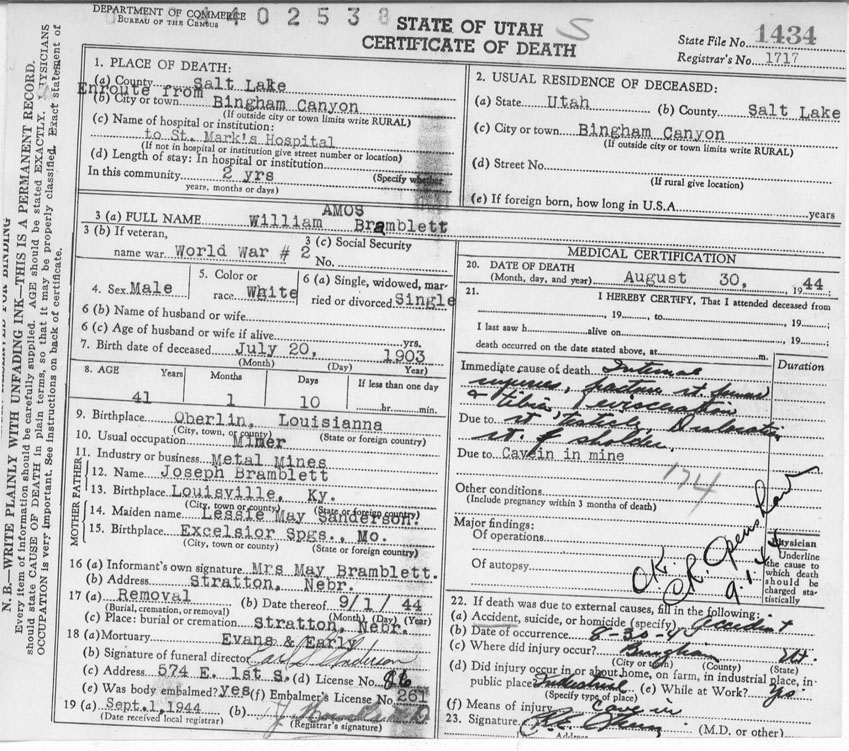 DEPARTMENT OF COMMERCE
BUREAU OF THE CENSUS
402538
S
STATE OF UTAH
CERTIFICATE OF DEATH
State File No. 1434
Registrar's No. 1717
N. B.—WRITE PLAINLY WITH UNFADING INK—THIS IS A PERMANENT RECORD.
Every item of information should be carefully supplied. AGE should be stated EXACTLY. PHYSICIANS
should state CAUSE OF DEATH in plain terms, so that it may be properly classified. Exact statement of
OCCUPATION is very important. See instructions on back of certificate.
1. PLACE OF DEATH:
(a) County Salt Lake
Enroute from
(b) City or town Bingham Canyon
(If outside city or town limits write RURAL)
(c) Name of hospital or institution:
to St. Mark's Hospital
(If not in hospital or institution give street number or location)
(d) Length of stay: In hospital or institution
In this community 2 yrs (Specify whether
years, months or days)
2. USUAL RESIDENCE OF DECEASED:
(a) State Utah (b) County Salt Lake
(c) City or town Bingham Canyon
(If outside city or town limits write RURAL)
(d) Street No.
(If rural give location)
(e) If foreign born, how long in U.S.A. years
AMOS
3 (a) FULL NAME William Bramblett
3 (b) If veteran,
name war World War # 2
3 (c) Social Security
No.
4. Sex Male
5. Color or
race White
6 (a) Single, widowed, mar-
ried or divorced Single
6 (b) Name of husband or wife
6 (c) Age of husband or wife if alive yrs.
7. Birth date of deceased July 20, 1903
(Month) (Day) Year)
8. AGE Years Months Days If less than one day
41 1 10 hr. min.
9. Birthplace Oberlin, Louisianna
(City, town, or county) (State or foreign country)
10. Usual occupation Miner
11. Industry or business Metal Mines
MOTHER FATHER
12. Name Joseph Bramblett
13. Birthplace Louisville, Ky.
(City, town or county) (State or foreign country)
14. Maiden name Lessie May Sanderson.
15. Birthplace Excelsior Spgs., Mo.
(City, town or county) (State or foreign country)
16 (a) Informant's own signature Mrs May Bramblett.
(b) Address Stratton, Nebr.
17 (a) Removal (b) Date thereof 9/1/ 44
(Burial, cremation, or removal) (Month) (Day) (Year)
(c) Place: burial or cremation Stratton, Nebr.
18 (a) Mortuary Evans & Early
(b) Signature of funeral director Earl S Anderson
(c) Address 574 E. 1st S. (d) License No. 86
(e) Was body embalmed? yes (f) Embalmer's License No. 261
19 (a) Sept. 1, 1944 (b)
(Date received local registrar) (Registrar's signature)
MEDICAL CERTIFICATION
20. DATE OF DEATH
(Month, day, and year) August 30, 1944
21. I HEREBY CERTIFY, That I attended deceased from
, 19 , to , 19 ;
I last saw h alive on , 19 ;
death occurred on the date stated above, at m.
Immediate cause of death Internal
Duration
injuries, fracture rt. femur
& tibia, evisceration
Due to rt. testicle, Dislocation
rt. sholder.
Due to Cavein in mine
174
Other conditions
(Include pregnancy within 3 months of death)
Major findings:
Of operations
Of autopsy
Physician
Underline
the cause to
which death
should be
charged sta-
tistically
O.K.
9.1.44
22. If death was due to external causes, fill in the following:
(a) Accident, suicide, or homicide (specify) accident
(b) Date of occurrence 8-30-4
(c) Where did injury occur? Bingham Ut.
(City or town) (County) (State)
(d) Did injury occur in or about home, on farm, in industrial place, in
public place Industrial (e) While at Work? yes
(Specify type of place)
(f) Means of injury cave in
23. Signature (M.D. or other)
Address